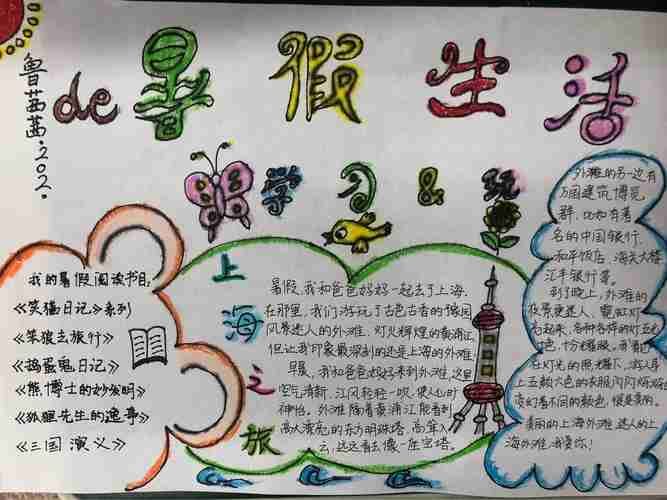 鲁茜茜.202.
de暑假生活
学习&玩
我的暑假阅读书目:
《笑猫日记》系列
《笨狼去旅行》
《捣蛋鬼日记》
《熊博士的妙发明》
《狐狸先生的逸事》
《三国演义》
上海之旅
暑假,我和爸爸妈妈一起去了上海.
在那里,我们游玩了古色古香的豫园
风景迷人的外滩,灯火辉煌的黄浦江,
但让我印象最深刻的还是上海的外滩.
早晨,我和爸爸妈妈来到外滩,这里
空气清新,江风轻轻一吹,使人心旷
神怡.外滩隔着黄浦江能看到
高大漂亮的东方明珠塔,高耸入
云,远远看去像一座宝塔.
外滩的另一边有
万国建筑博览
群,比如有著
名的中国银行.
和平饭店,海关大楼
汇丰银行等.
到了晚上,外滩的
夜景更迷人,霓虹灯
起来,各种各样的灯五
色,十分耀眼,
在灯光的照耀下,游人身
上五颜六色的衣服闪闪
变幻着不同的颜色,
美丽的上海外滩,迷人的上
海外滩,我爱你!